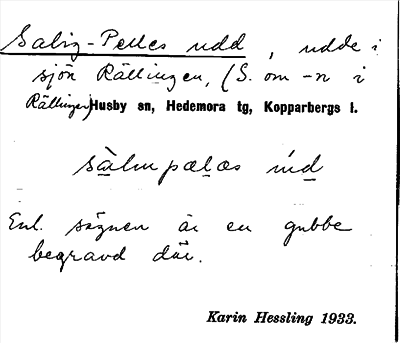 Salig-Pelles udd, udde i
sjön Rällingen, (S. om -n i
Rällingen) Husby sn, Hedemora tg, Kopparbergs l.
sälnpælæs úd
Enl. sägnen är en gubbe
begravd där.
Karin Hessling 1933.